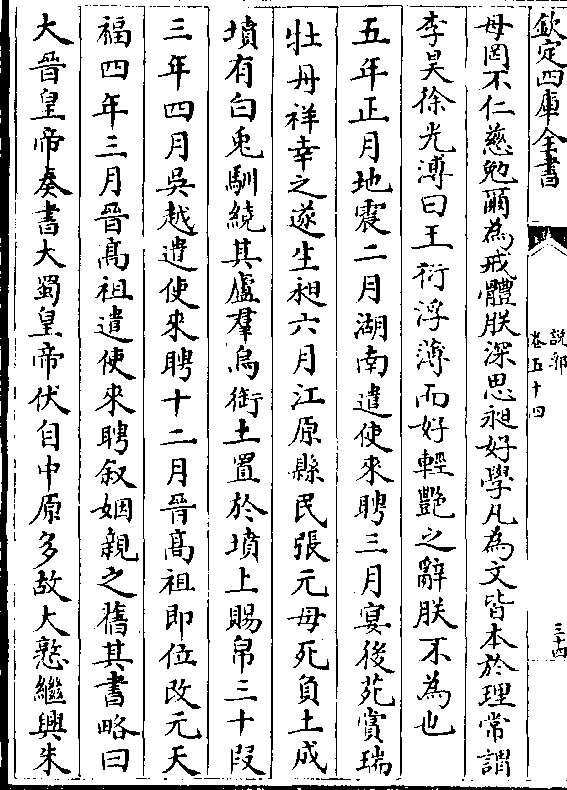 欽定四庫全書
說郛
卷五十四
三十四
母罔不仁慈勉爾為戒體朕深思昶好學凡為文皆本於理常謂
李昊徐光溥曰王衍浮薄而好輕艷之辭朕不為也
五年正月地震二月湖南遣使來聘三月宴後苑賞瑞
牡丹祥幸之遂生昶六月江原縣民張元母死負土成
墳有白兎馴繞其廬羣烏銜土置於墳上賜帛三十段
三年四月吳越遣使來聘十二月晉髙祖即位改元天
福四年三月晉髙祖遣使來聘叙姻親之舊其書略曰
大晉皇帝奏書大蜀皇帝伏自中原多故大憝繼興朱